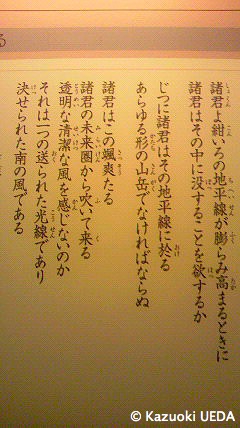 諸君よ紺いろの地平線が膨らみ高まるときに
諸君はその中に没することを欲するか
じつに諸君はその地平線に於る
あらゆる形の山岳でなければならぬ
諸君はこの颯爽たる
諸君の未来圏から吹いて来る
透明な清潔な風を感じないのか
それは一つの送られた光線であり
決せられた南の風である
© Kazuoki UEDA